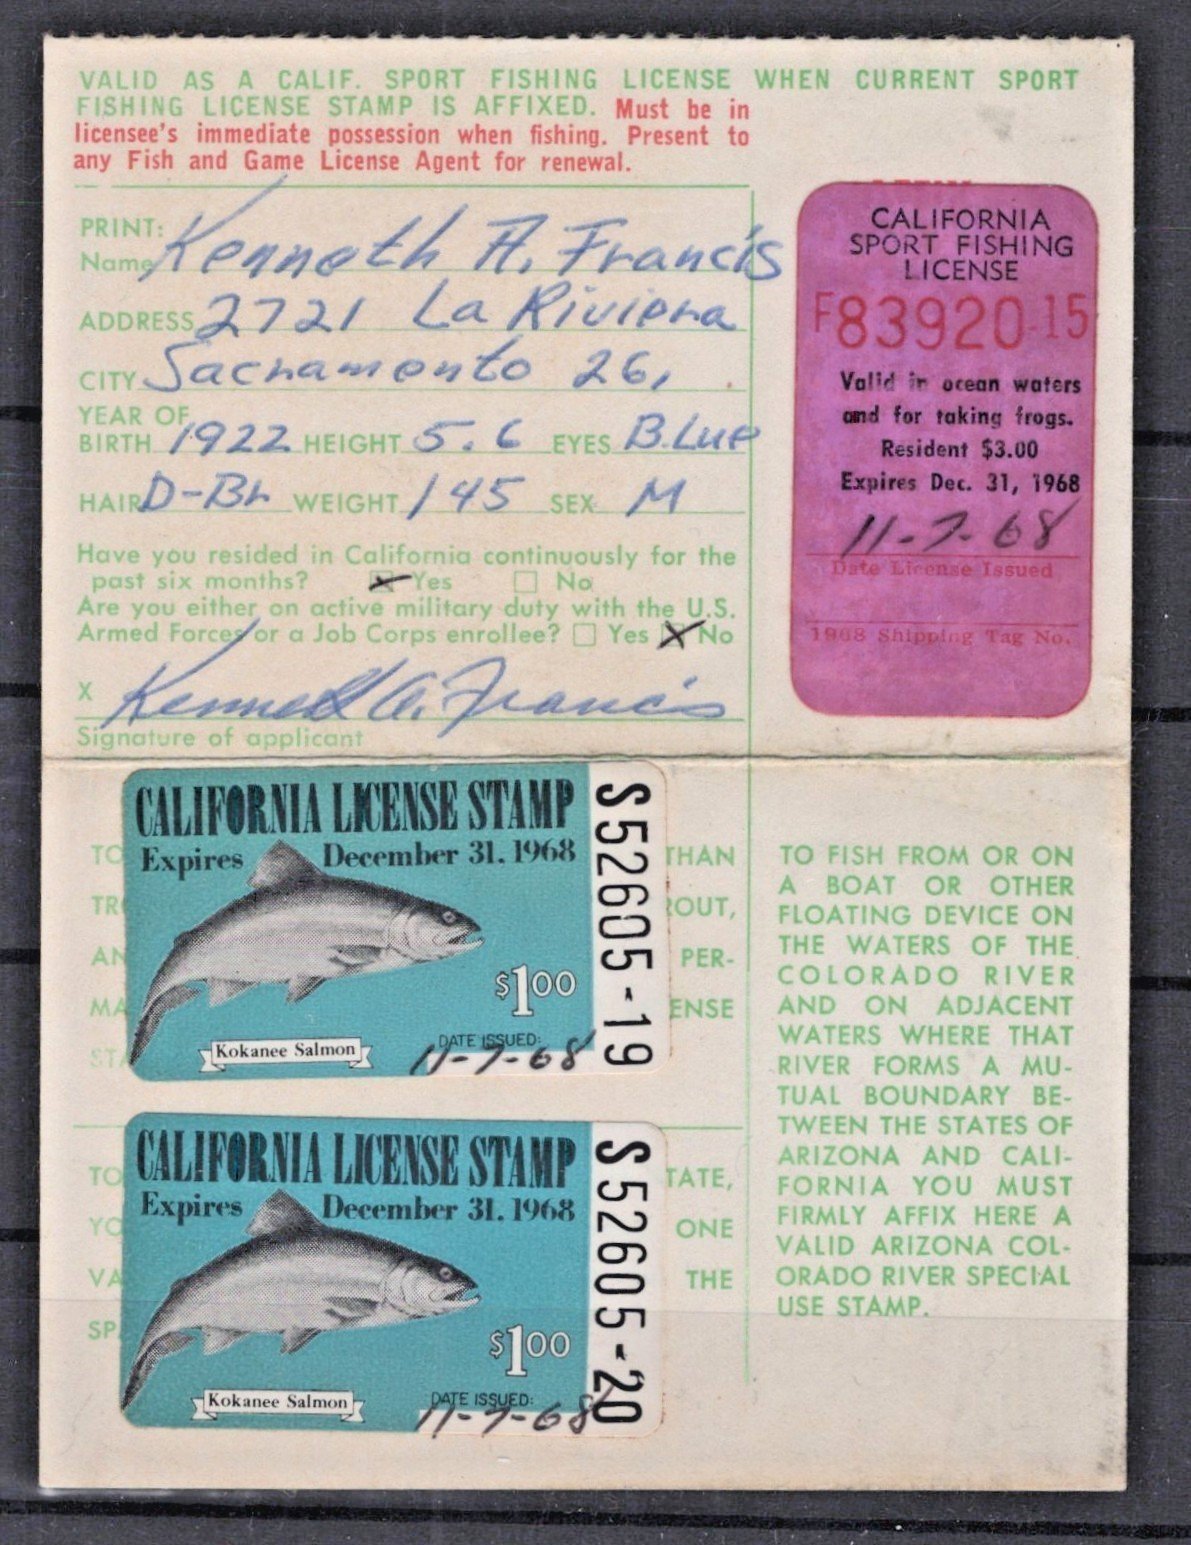 VALID AS A CALIF. SPORT FISHING LICENSE WHEN CURRENT SPORT
FISHING LICENSE STAMP IS AFFIXED. Must be in
licensee's immediate possession when fishing. Present to
any Fish and Game License Agent for renewal.
PRINT:
Name Kenneth A. Francis
ADDRESS 2721 La Riviera
CITY Sacramento 26,
YEAR OF
BIRTH 1922 HEIGHT 5.6 EYES BLue
HAIR D-Br WEIGHT 145 SEX M
Have you resided in California continuously for the
past six months? Yes No
Are you either on active military duty with the U.S.
Armed Forces or a Job Corps enrollee? Yes No
X Kenneth A. Francis
Signature of applicant
CALIFORNIA
SPORT FISHING
LICENSE
F83920-15
Valid in ocean waters
and for taking frogs.
Resident $3.00
Expires Dec. 31, 1968
11-7-68
Date License Issued
1968 Shipping Tag No.
CALIFORNIA LICENSE STAMP
Expires December 31. 1968
$1.00
Kokanee Salmon
DATE ISSUED:
11-7-68
S52605-19
TO
THAN
TR
ROUT,
AN
PER-
MA
ENSE
STA
CALIFORNIA LICENSE STAMP
Expires December 31. 1968
$1.00
Kokanee Salmon
DATE ISSUED:
11-7-68
S52605-20
TO
TATE,
YO
ONE
VA
THE
SP
TO FISH FROM OR ON
A BOAT OR OTHER
FLOATING DEVICE ON
THE WATERS OF THE
COLORADO RIVER
AND ON ADJACENT
WATERS WHERE THAT
RIVER FORMS A MU-
TUAL BOUNDARY BE-
TWEEN THE STATES OF
ARIZONA AND CALI-
FORNIA YOU MUST
FIRMLY AFFIX HERE A
VALID ARIZONA COL-
ORADO RIVER SPECIAL
USE STAMP.